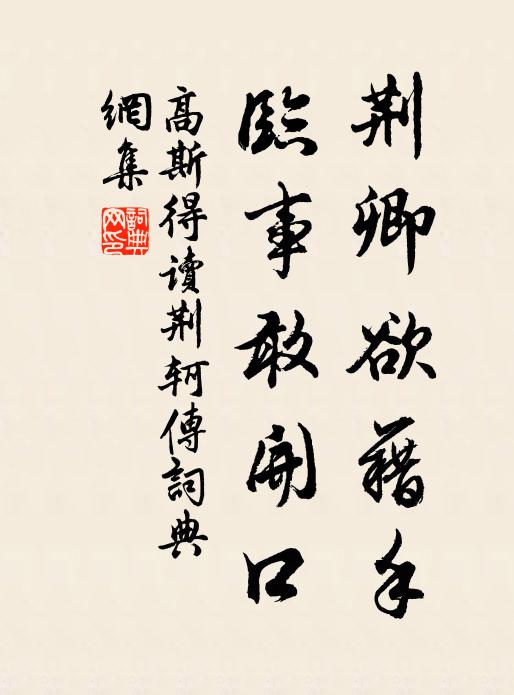 荆卿欲藉手
臨事敢開口
高斯得讀荆軻傳詞典
網集
詞典网印